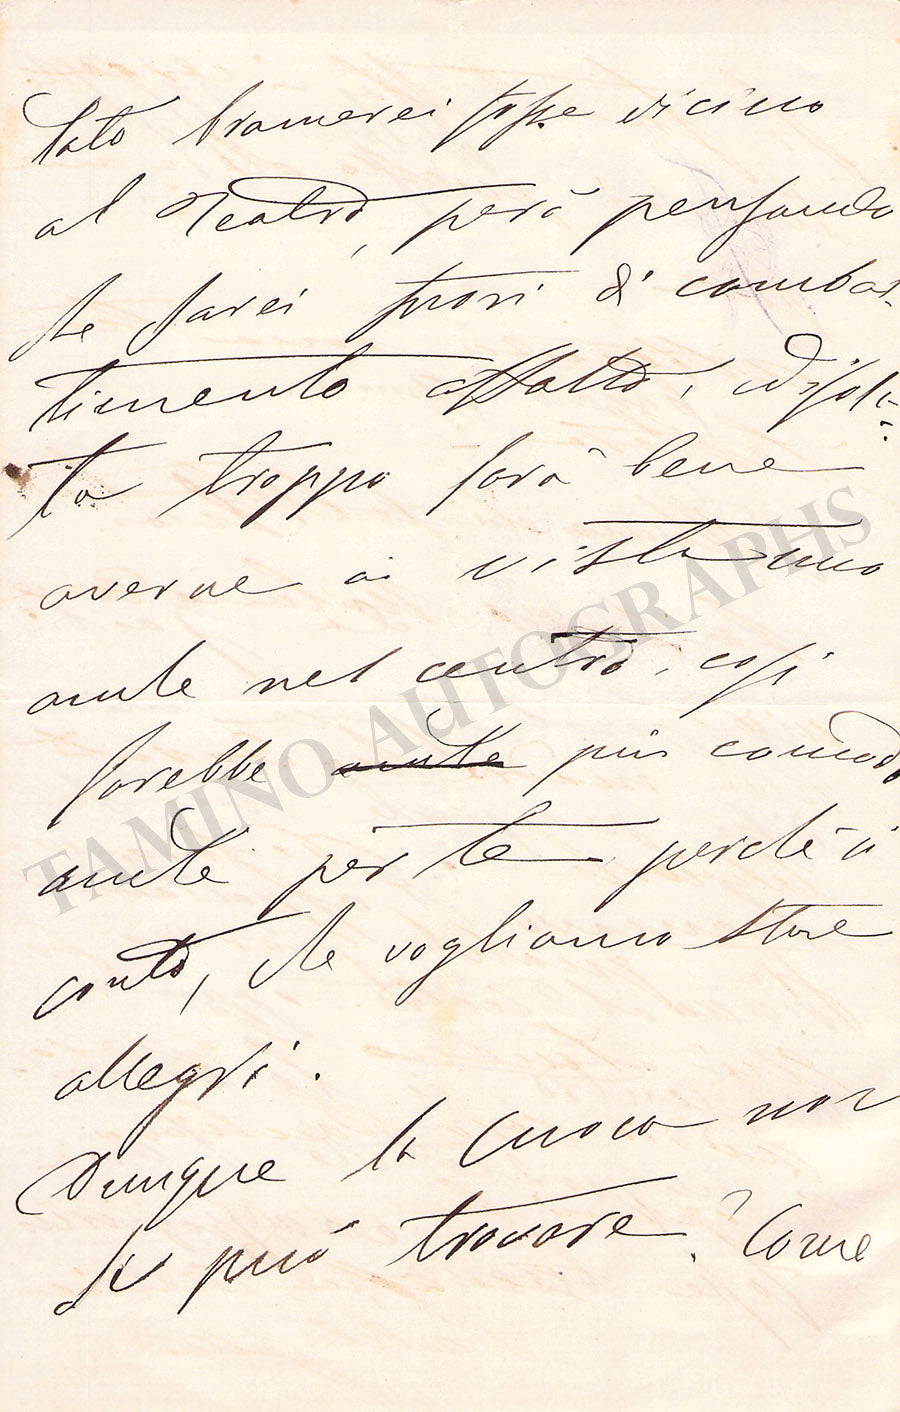 lato bramerei fosse vicino
al Teatro, però pensando
che sarei fuori di combat-
timento affatto, ed isola-
ta troppo sarà bene
averne in vista uno
anche nel centro, così
sarebbe anche più comodo
anche per te perchè in
conto, che vogliamo stare
allegri.
Dunque la cuoca non
si può trovare? Come
TAMINO AUTOGRAPHS